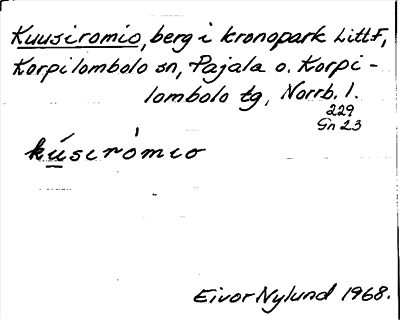 Kuusiromio, berg i kronopark Litt. F,
Korpilombolo sn, Pajala o. Korpi-
lombolo tg, Norrb. l.
229
Gn 23
kúsirómio
Eivor Nylund 1968.